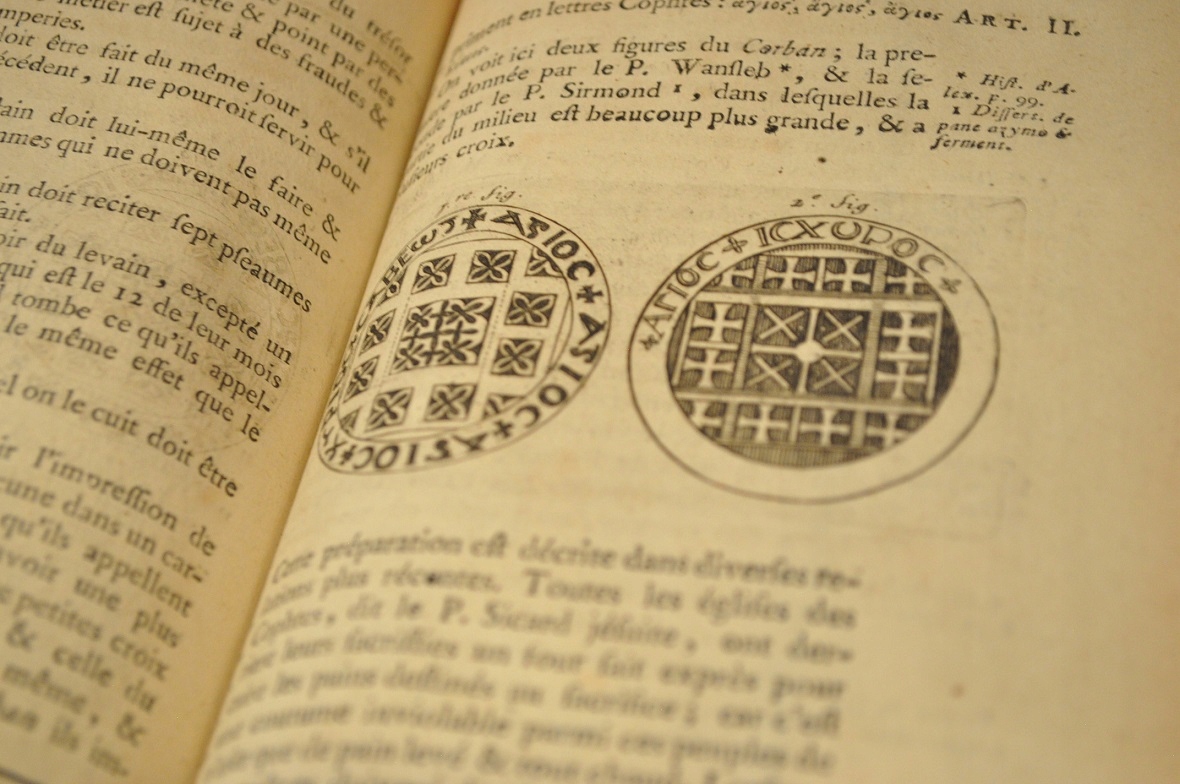 du trésor
par une per-
& point par des
métier est sujet à des fraudes &
tromperies.
doit être fait du même jour, & s'il
précédent, il ne pourroit servir pour
doit lui-même le faire &
femmes qui ne doivent pas même
doit reciter sept pseaumes
fait.
du levain, excepté un
qui est le 12 de leur mois
tombe ce qu'ils appel-
le même effet que le
lequel on le cuit doit être
l'impression de
dans un car-
qu'ils appellent
avoir une plus
petites croix
& celle du
même, &
ils im-
en lettres Cophtes : ἅγιος, ἅγιος, ἅγιος ART. II.
On voit ici deux figures du Corban ; la pre-
donnée par le P. Wansleb *, & la se-
par le P. Sirmond ¹, dans lesquelles la
du milieu est beaucoup plus grande, & a
plusieurs croix.
* Hist. d'A-
lex. p. 99.
1 Dissert. de
pane azymo &
ferment.
1.re fig.
✠ ΑΓΙΟC ✠ ΑΓΙΟC ✠ ΑΓΙΟC ✠
2.e fig.
✠ ΑΓΙΟC ✠ ICXOUPOC ✠
Cette préparation est décrite dans diverses re-
lations plus récentes. Toutes les églises des
Cophtes, dit le P. Sicard jésuite, ont der-
leurs sacristies un four fait exprès pour
les pains destinés au sacrifice ; car c'est
une coutume inviolable parmi ces peuples de
que de pain levé & tout chaud.